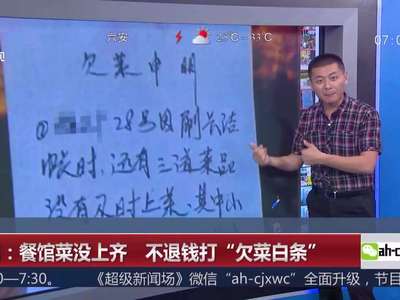 六安 23℃~33℃
07:0
视
欠菜申明
28号因刷卡结
账时,还有三道菜品
没有及时上菜,其中小
:餐馆菜没上齐 不退钱打“欠菜白条”
ah-c
0—7:30。 《超级新闻场》微信“ah-cjxwc”全面升级,节目